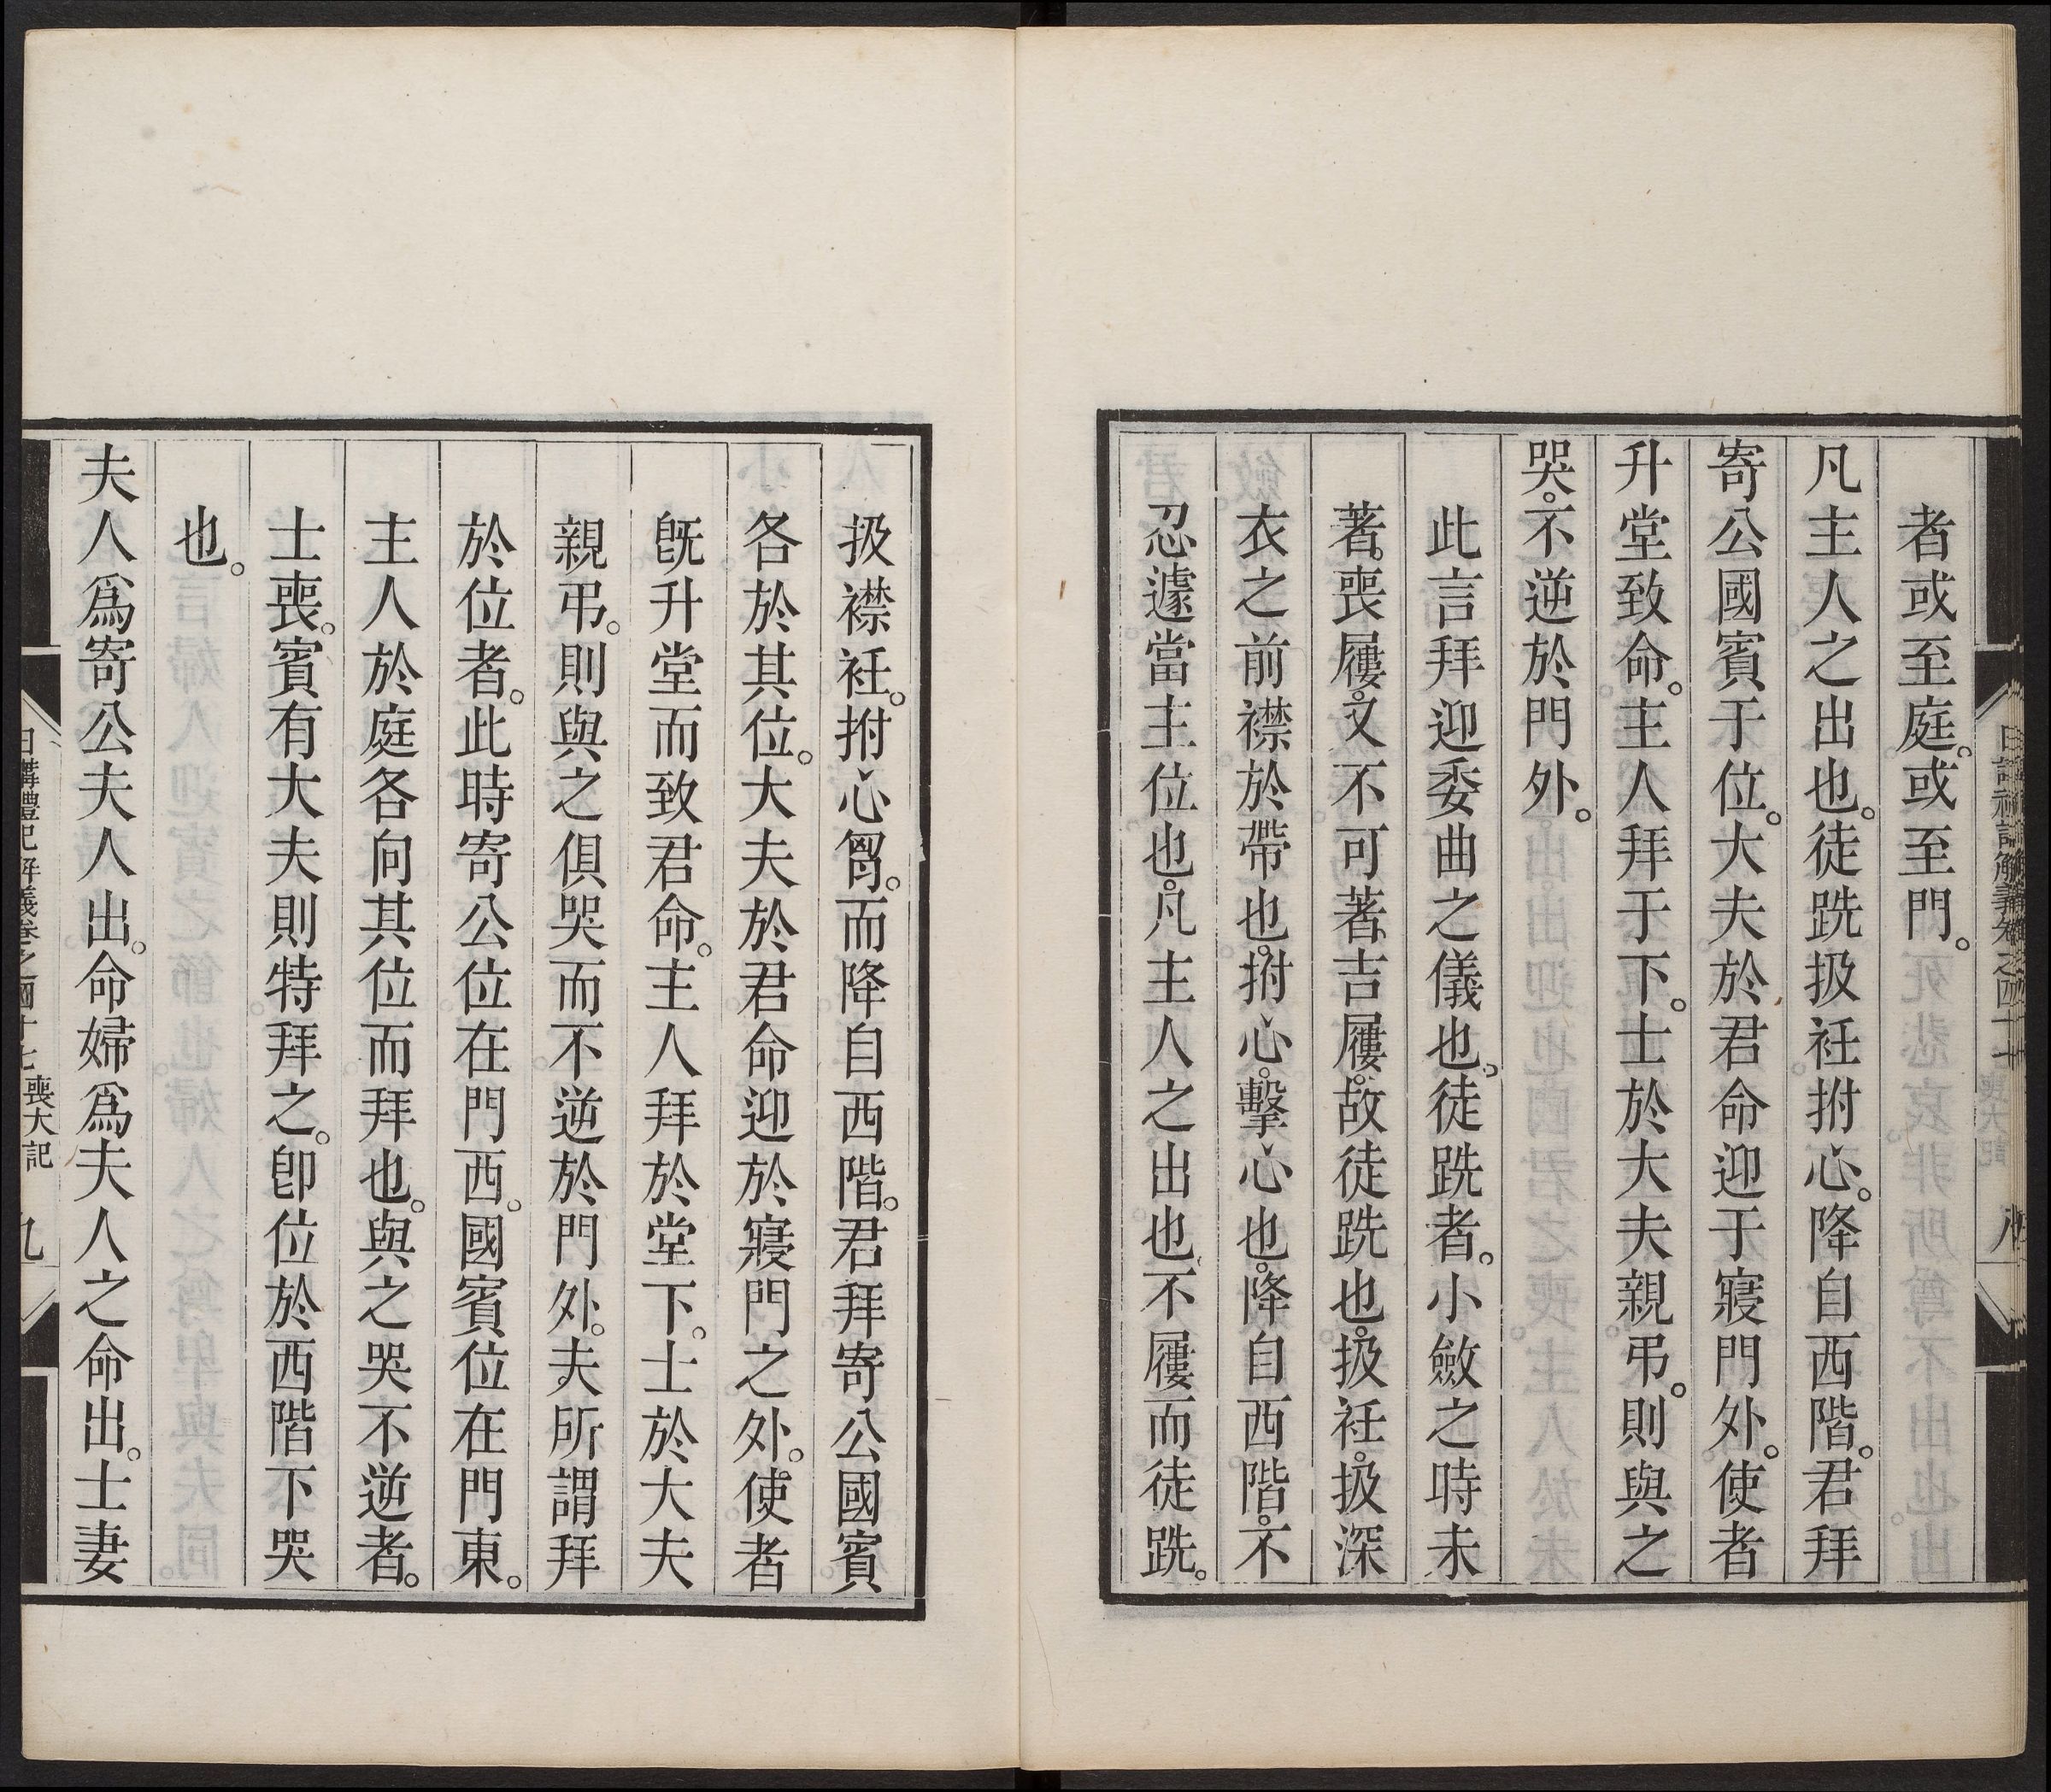 者或至庭。或至門。
凡主人之出也。徒跣扱衽拊心。降自西階。君拜
寄公國賓于位。大夫於君命迎于寢門外。使者
升堂致命。主人拜于下。士於大夫親弔。則與之
哭。不逆於門外。
此言拜迎委曲之儀也。徒跣者。小斂之時未
著。喪屨。又不可著吉屨。故徒跣也。扱衽。扱深
衣之前襟於帶也。拊心。擊心也。降自西階。不
忍遽當主位也。凡主人之出也。不屨而徒跣。
扱襟衽。拊心胷。而降自西階。君拜寄公國賓
各於其位。大夫於君命迎於寢門之外。使者
旣升堂而致君命。主人拜於堂下。士於大夫
親弔。則與之俱哭而不逆於門外。夫所謂拜
於位者。此時寄公位在門西。國賓位在門東。
主人於庭各向其位而拜也。與之哭不逆者。
士喪。賓有大夫則特拜之。卽位於西階下哭
也。
夫人爲寄公夫人出。命婦爲夫人之命出。士妻
日講禮記解義卷之四十七 喪大記 九